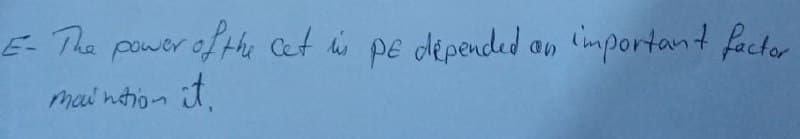 E- The power of the cet is PE depended on important factor
maintion it.